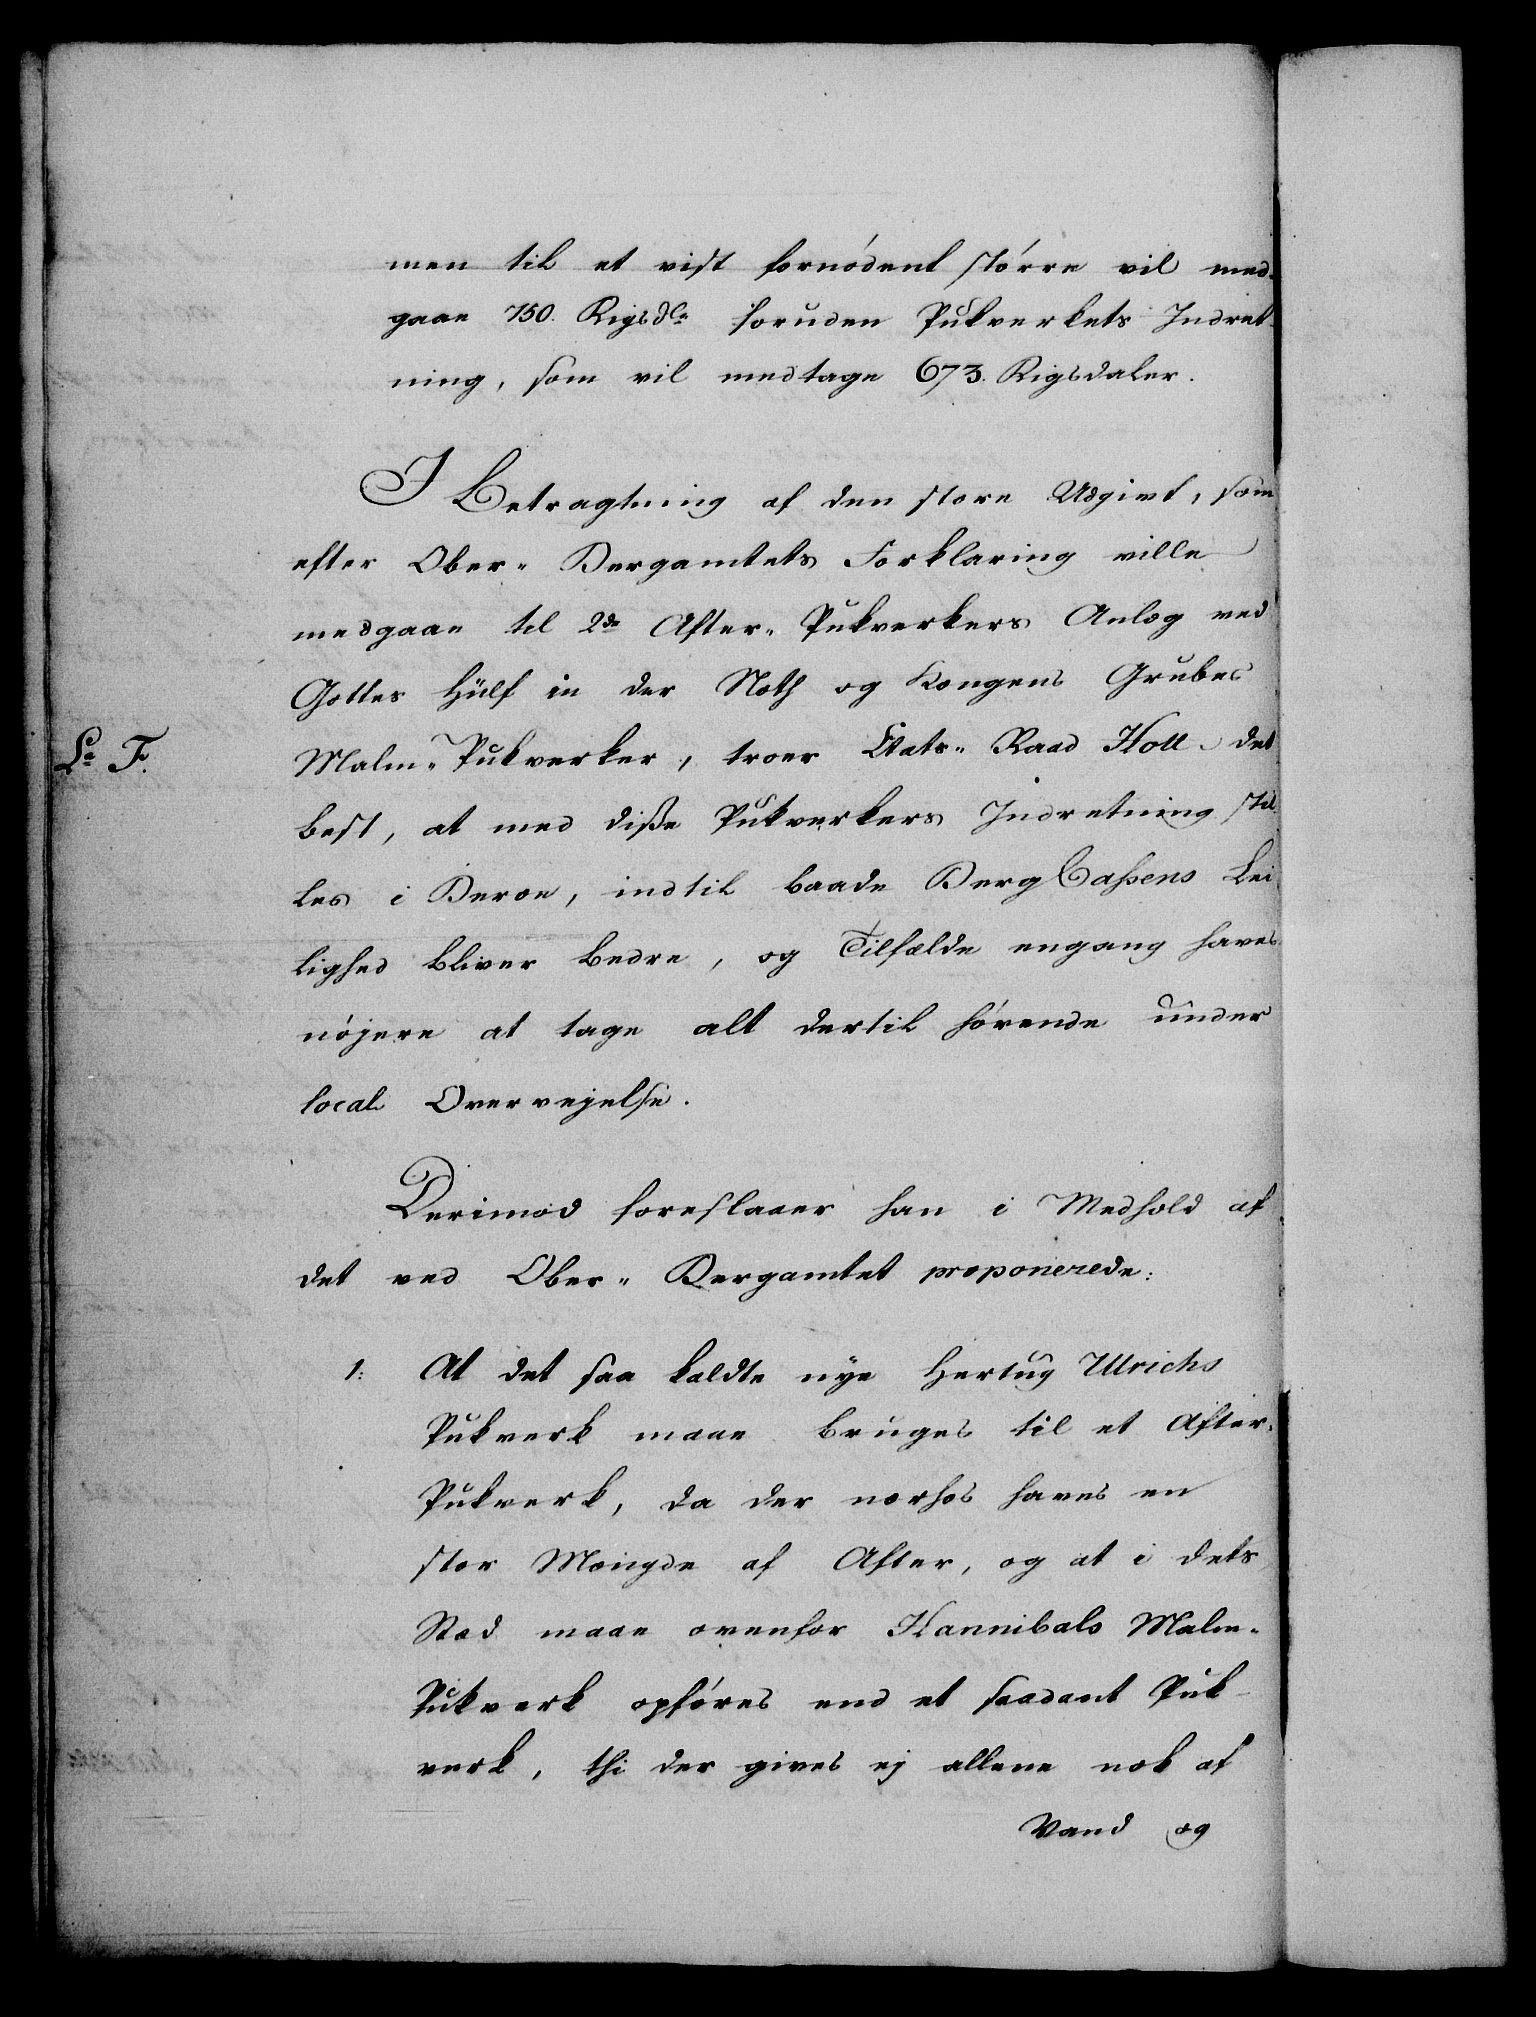 men til et vist fornødent større vil med-
gaae 750. Rigsdlr foruden Pukverkets Indret-
ning, som vil medtage 673. Rigsdaler.
I Betragtning af den store Udgivt, som
efter Ober- Bergamtets Forklaring ville
medgaae til 2de After- Pukverkers Anlæg ved
Gottes Hülf in der Noth og Kongens Grubes
Malm- Pukverker, troer Etats- Raad Holl det
L<sup>a</sup> F.
best, at med diße Pukverkers Indretning stil
les i Beroe, indtil baade Berg Caßens Lei
lighed bliver bedre, og Tilfælde engang haves
nøjere at tage alt dertil hørende under
local Overvejelse.
Derimod foreslaaer han i Medhold af
det ved Ober- Bergamtet proponerede:
1: At det saa kaldte nye Hertug Ulrichs
Pukverk maae bruges til et After-
Pukverk, da der nærhos haves en
stor Mængde af After, og at i dets
Stæd maae ovenfor Hannibals Malm-
Pukverk opføres end et saadant Puk-
verk, thi der gives ej allene nok af
Vand og